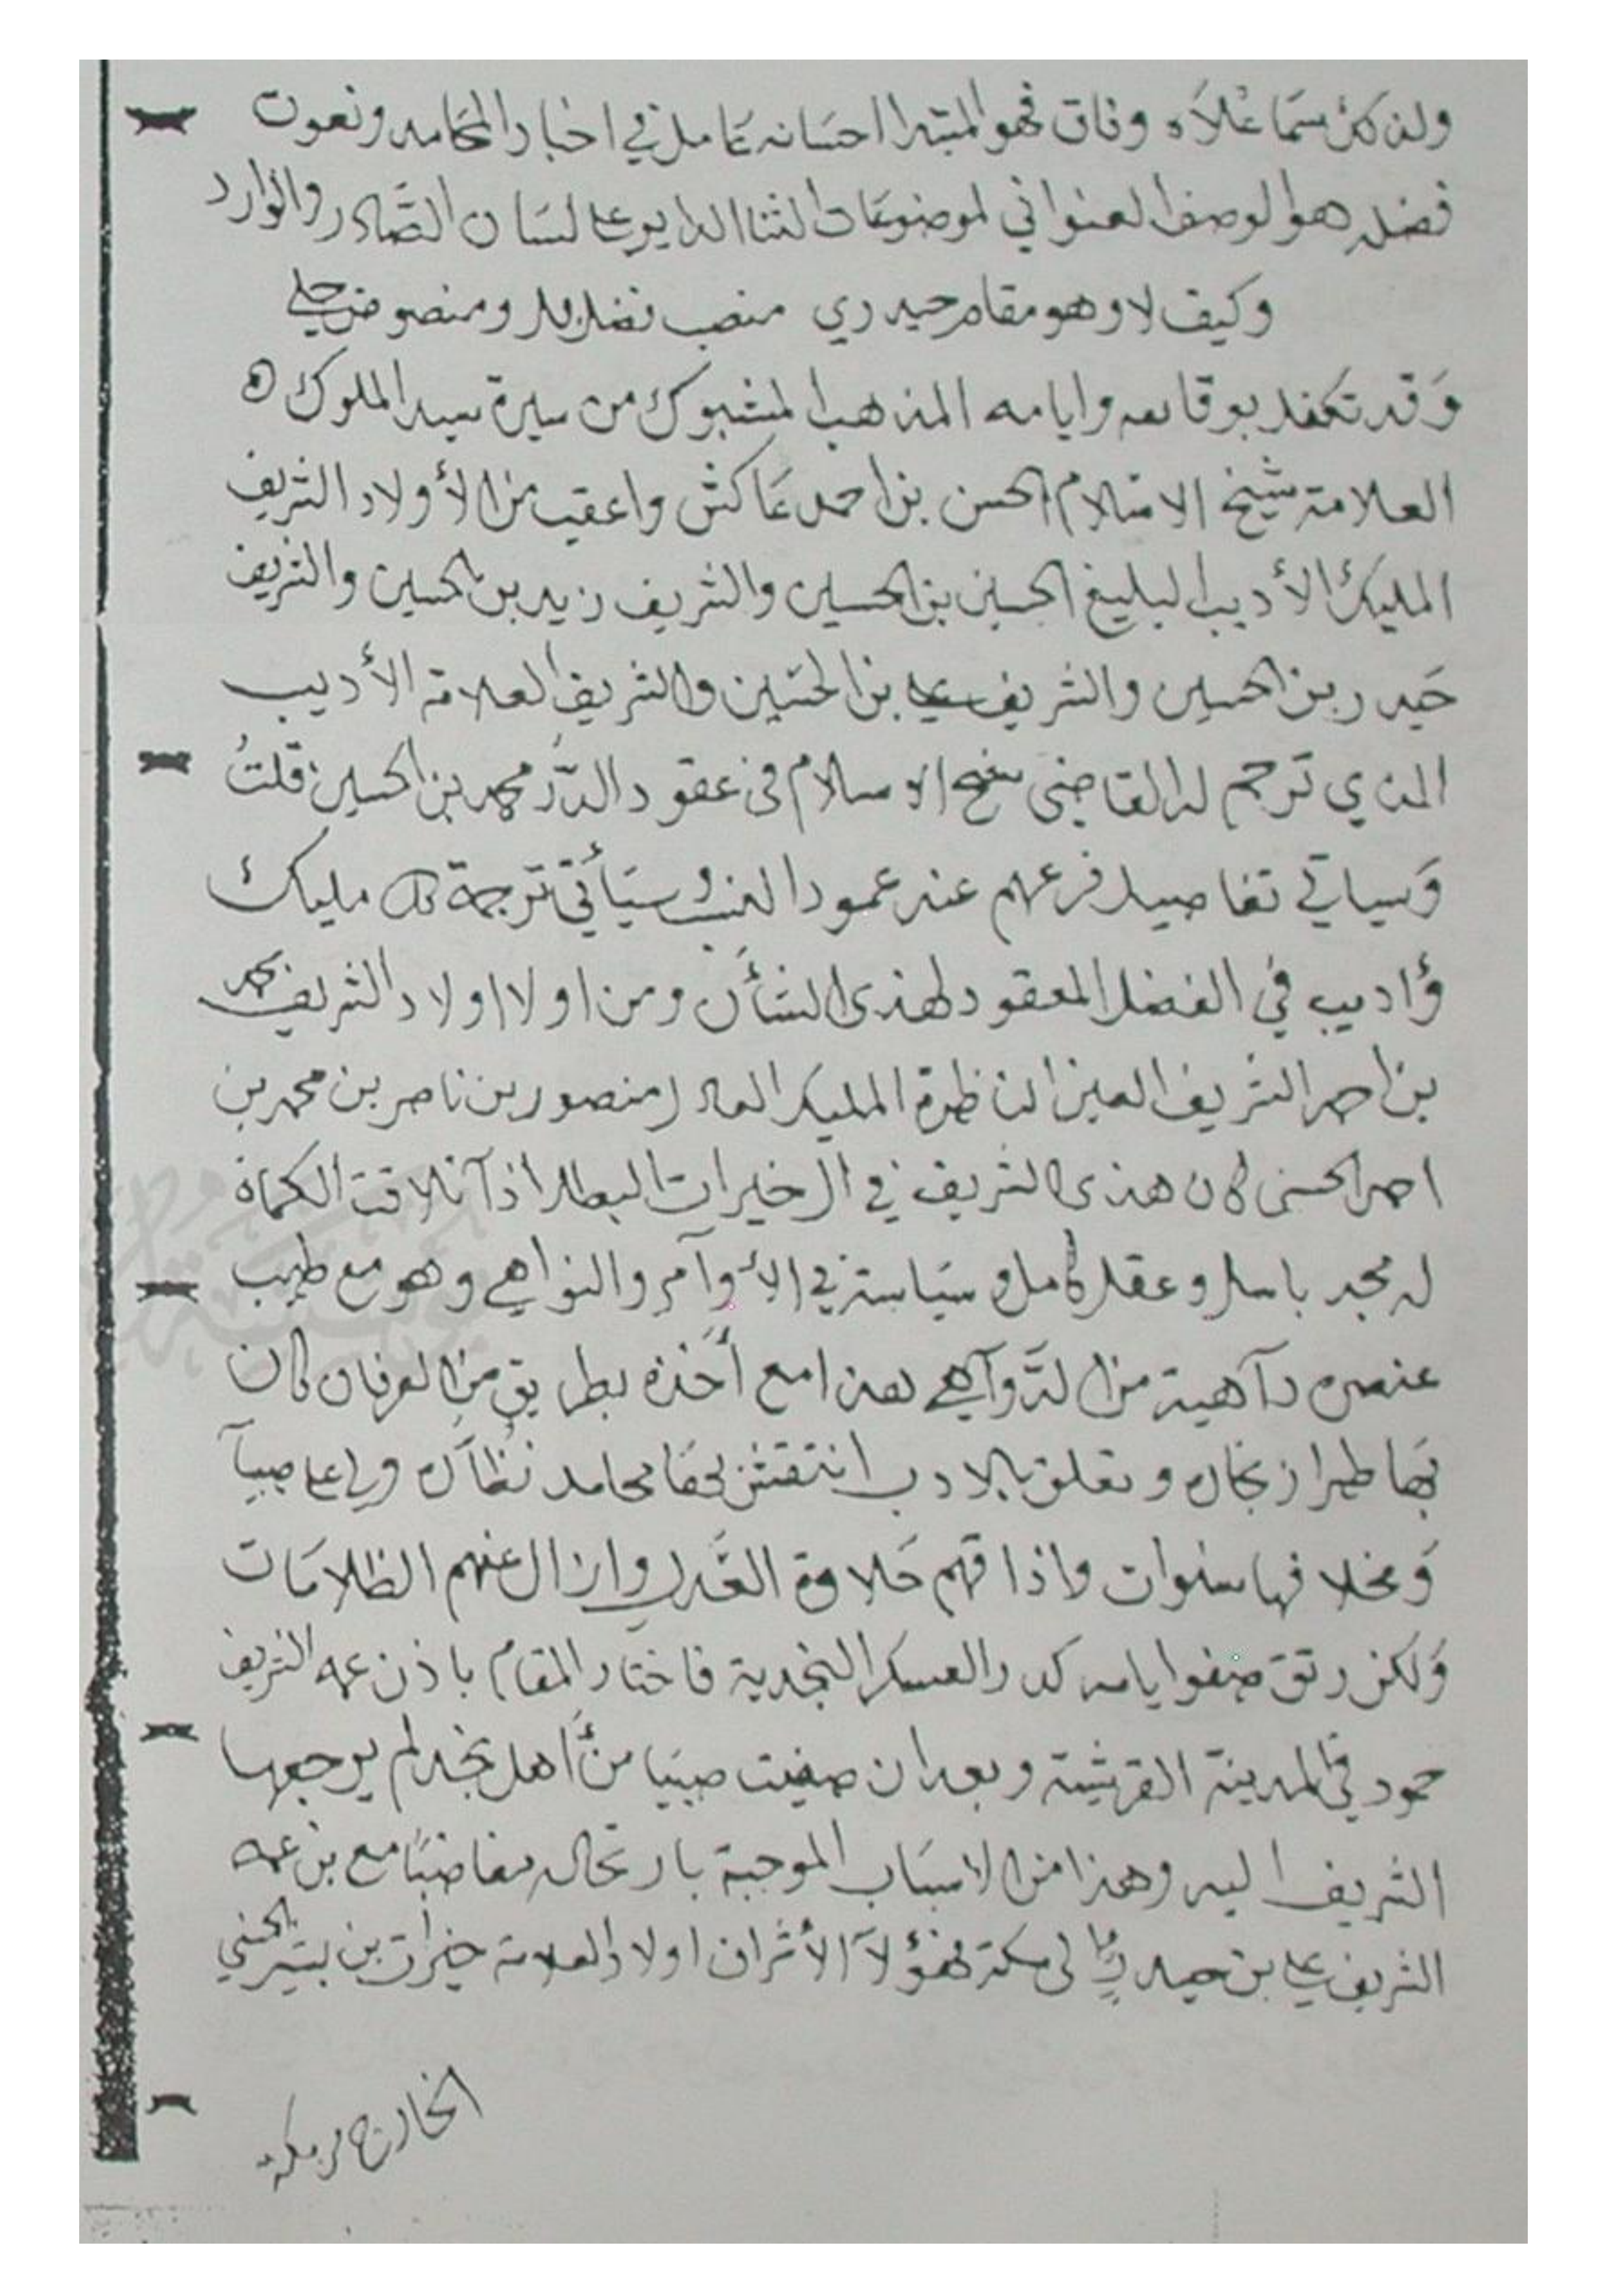 ولئن سما علاه وفاق فهو المبتدا احسانه عامل في اخبار المحامد ونعوت
فضله هو الوصف العنواني لموضوعات الثنا الداير على لسان الصادر والوارد
وكيف لا وهو مقام حيدري منصب فضله ومنصوص جلي
وقد تكفل بوقائعه وايامه الذهب المسبوك من سيرة سيد الملوك
العلامة شيخ الاسلام الحسن بن احمد عاكش واعقب من الأولاد الشريف
المليك الأديب البليغ الحسين بن الحسين والشريف زيد بن الحسين والشريف
حيدر بن الحسين والشريف علي بن الحسين والشريف العلامة الأديب
الذي ترجم له القاضي شيخ الاسلام في عقود الدرر محمد بن الحسين قلت
وسياتي تفاصيل فرعهم عند عمود النسب وسيأتي ترجمة كل مليك
وأديب في الفصل المعقود لهذى الشأن ومن اولا اولاد الشريف محمد
بن احمد الشريف العين الناظرة المليك العادل منصور بن ناصر بن محمد بن
احمد الحسني كان هذى الشريف في ال خيرات البطل اذا تلاقت الكماة
له مجد باسل وعقل كامل وسياسة في الأوآمر والنواهي وهو مع طيب
عنصره دآهية من الدوآهي هذا مع أخذه بطريق من العرفان كان
بها طراز نجاره وتعلق بالادب انتقش بها محامد نظاره ولي على صبيآ
ومخلا فها سنوات واذاقهم حلاوة العدل وازال عنهم الظلامات
ولكن رنق صفو ايامه كدر العسكر النجدية فاختار المقام باذن عمه الشريف
حمود في المدينة القريشية وبعد ان صفيت صبيا من أهل نجد لم يرجعها
الشريف اليه وهذا من الاسباب الموجبة بارتحاله مغاضبا مع بن عمه
الشريف علي بن حيدر الى مكة فهؤلآ الأشراف اولاد العلامة خيرات بن بشير الحسني
الخارج من مكة